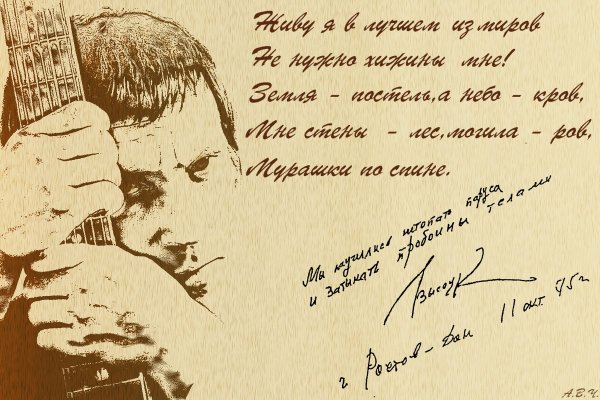 Живу я в лучшем из миров
Не нужно хижины мне!
Земля - постель,а небо - кров,
Мне стены - лес,могила - ров,
Мурашки по спине.
Мы учились штопать паруса
и затыкать пробоины телами
Высоц
г Ростов-Дон 11 окт 75г
А.В.Ч.